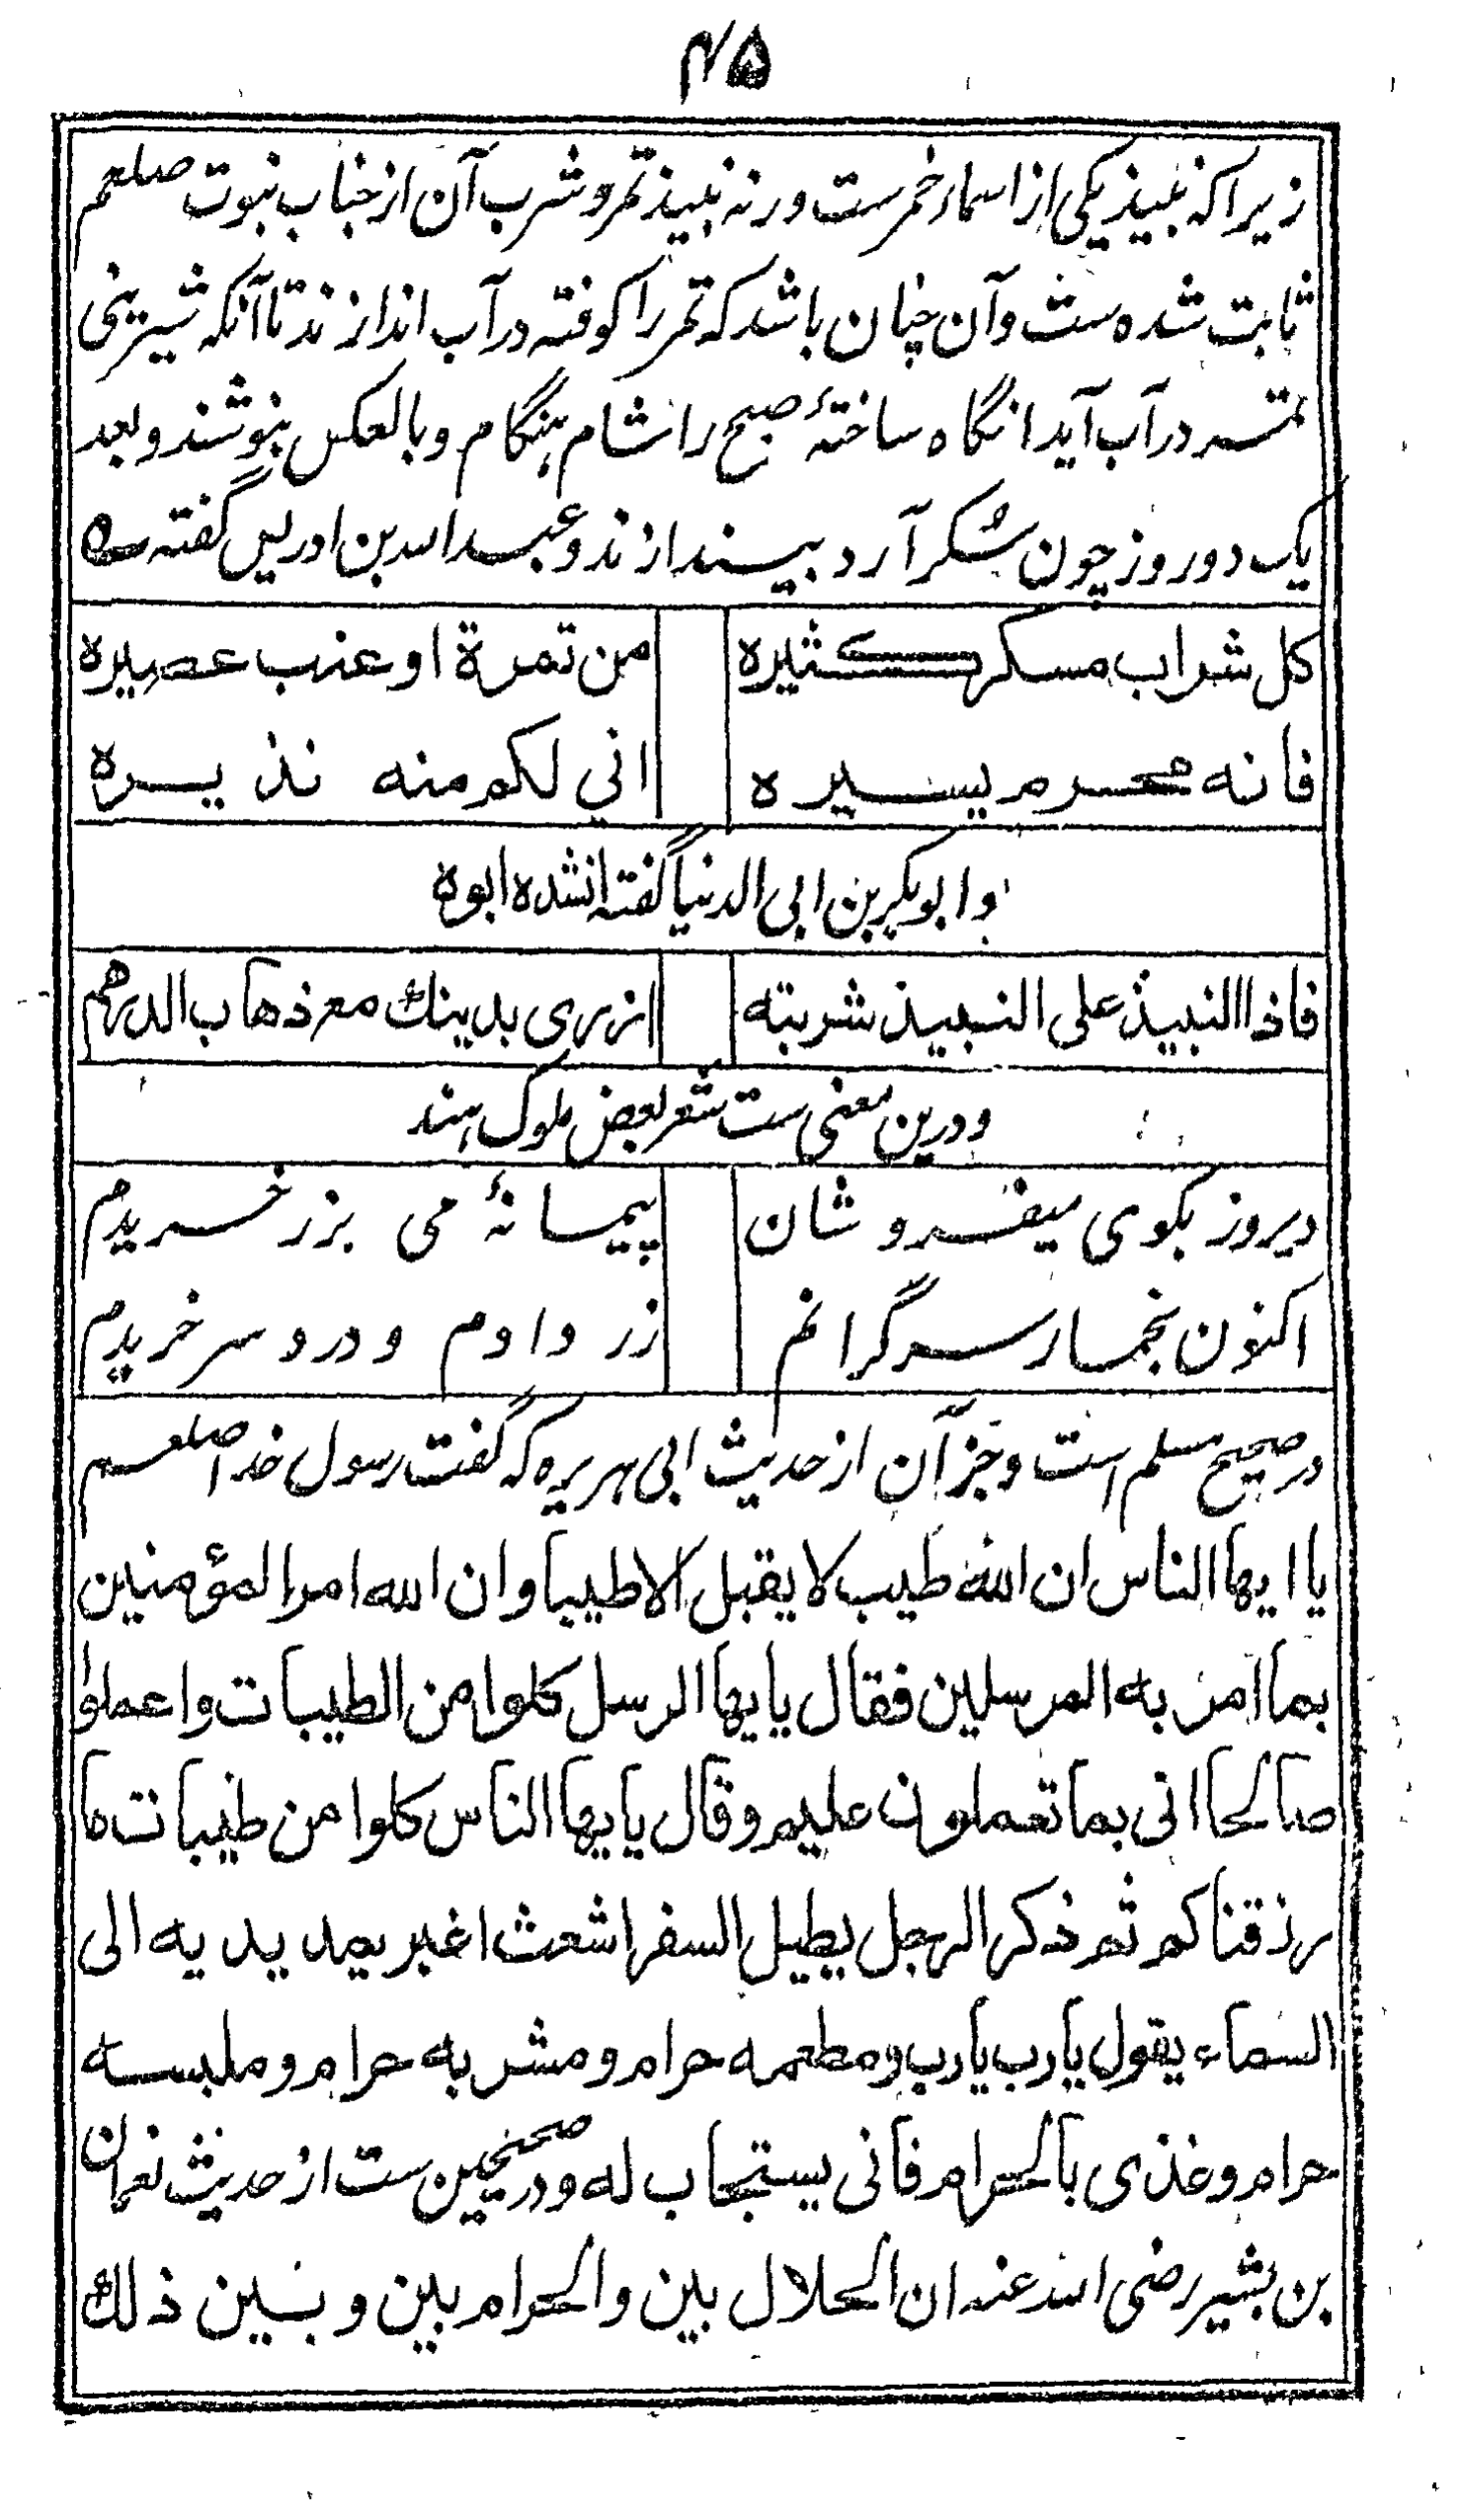 ۴۵
زیراکه نبیذ یکی از اسماء خمرست ورنه نبیذ تمر و شرب آن از جناب نبوت صلعم
ثابت شده ست و آن چنان باشد که تمر را کوفته در آب اندازند تا آنکه شیرینی
تمر در آب آید انگاه ساختۀ صبح را شام هنگام و بالعکس بنوشند و بعد
یک دو روز چون سکر آرد بیندازند و عبد الله بن ادریس گفته ه
كل شراب مسكر كثيره من تمرة او عنب عصيره
فانه محرم يسيره اني لكم منه نذيره
و ابوبکر بن ابی الدنیا گفته انشده ابوه
فاذا النبيذ على النبيذ شربته ازرى بدينك مع ذهاب الدرهم
و درین معنی ست شعر بعض ملوک هند
دیروز بکوی میفروشان پیمانۀ می بزر خریدم
اکنون بخمار سرگرانم زر دادم و درد سر خریدم
در صحیح مسلم است و جز آن از حدیث ابی هریره که گفت رسول خدا صلعم
يا ايها الناس ان الله طيب لا يقبل الا طيبا وان الله امر المؤمنين
بما امر به المرسلين فقال يايها الرسل كلوا من الطيبات واعملوا
صالحا انى بما تعملون عليم وقال يايها الناس كلوا من طيبات ما
رزقناكم ثم ذكر الرجل يطيل السفر اشعث اغبر يمد يديه الى
السماء يقول يارب يارب ومطعمه حرام ومشربه حرام وملبسه
حرام وغذى بالحرام فانى يستجاب له و در صحیحین ست از حدیث نعمان
بن بشیر رضی الله عنه ان الحلال بين والحرام بين وبين ذلك